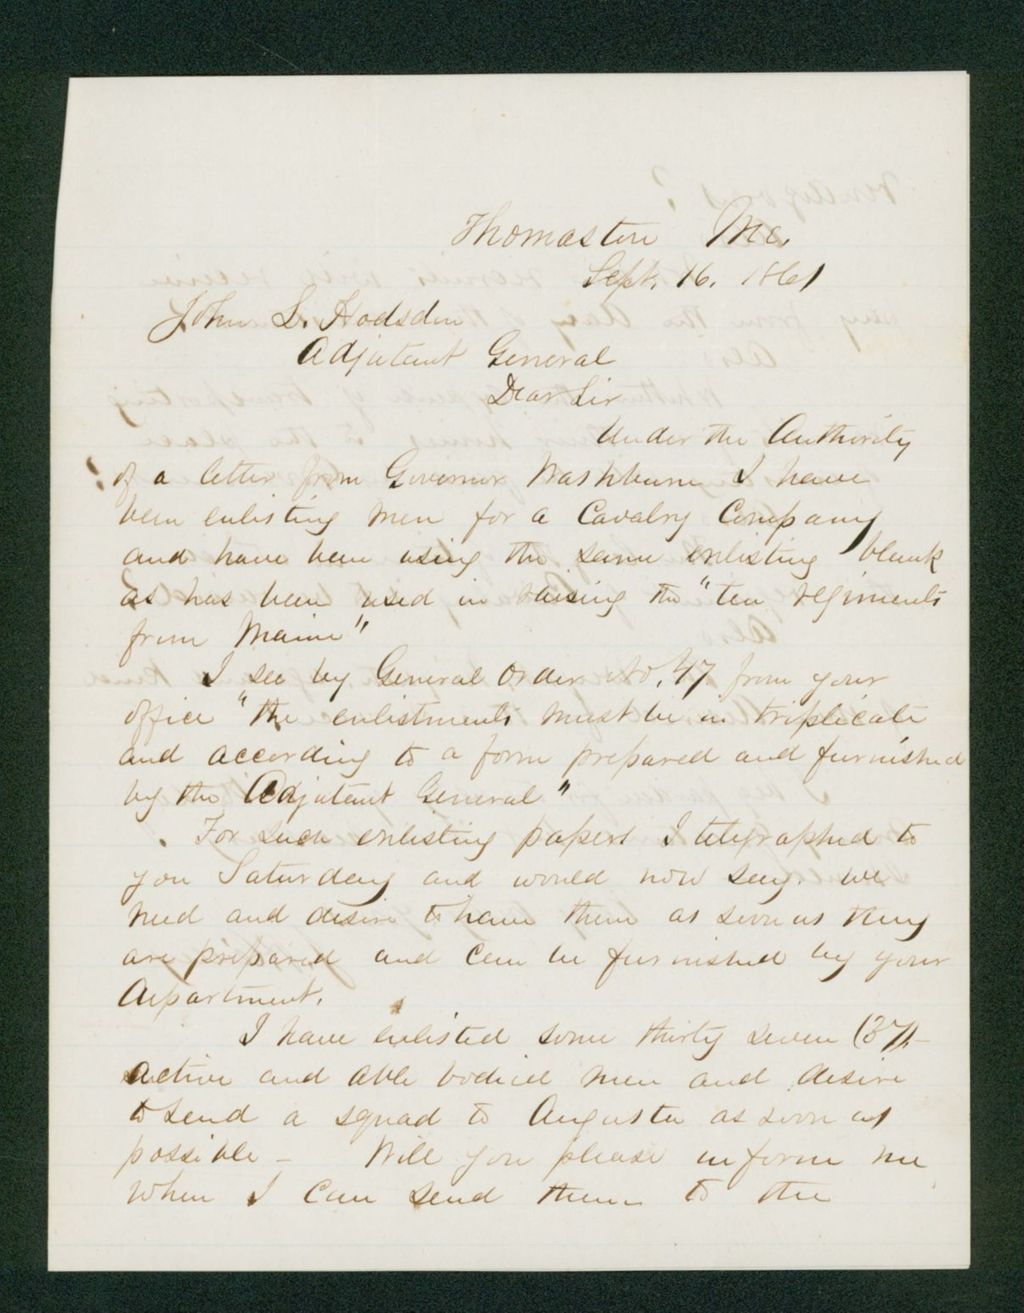 Thomaston Me.
Sept. 16. 1861
John L. Hodsdon
Adjutant General
Dear Sir
Under the Authority
of a letter from Governor Washburn I have
been enlisting men for a Cavalry Company
and have been using the same enlisting blank
as has been used in raising the "ten regiments
from Maine"
I see by General Order No. 47 from your
office "the enlistments must be in triplicate
and according to a form prepared and furnished
by the Adjutant General"
For such enlisting papers I telegraphed to
you Saturday and would now say. We
need and desire to have them as soon as they
are prepared and can be furnished by your
Department.
I have enlisted some thirty seven (37)
active and able bodied men and desire
to send a squad to Augusta as soon as
possible - Will you please inform me
when I can send them to the